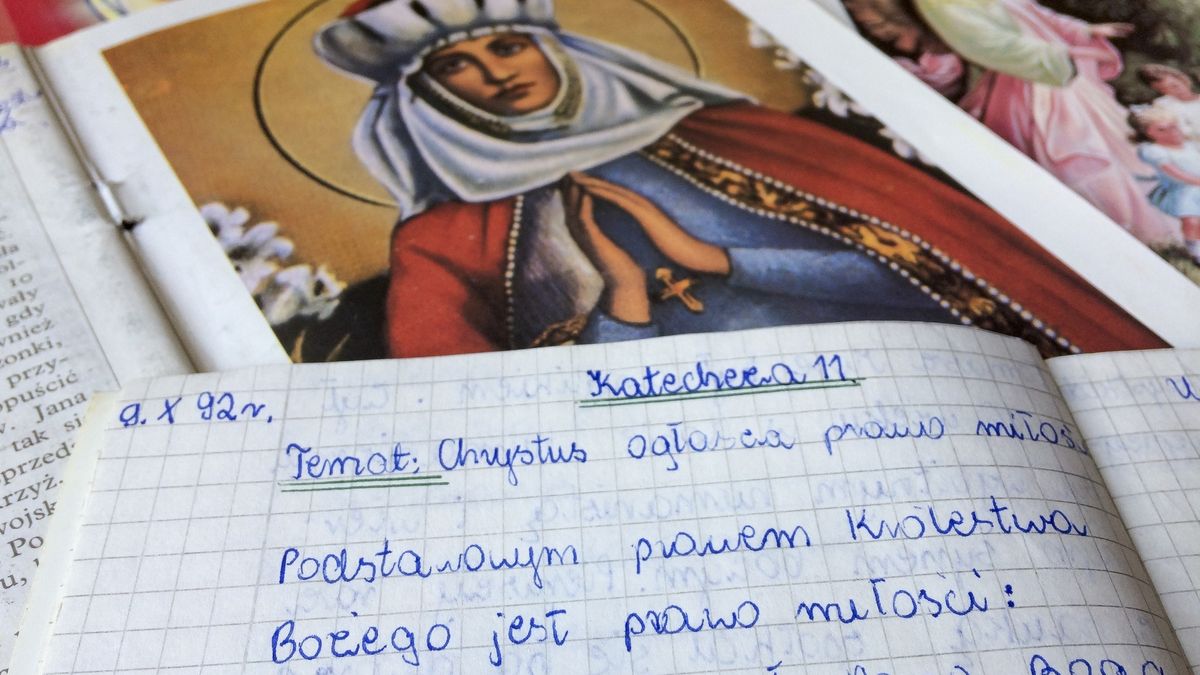 wały
gdy
wnież
zonki,
przy-
opuścić
w. Jana
tak si
przed
rzyż.
wojsk
Po
u,
9. X 92 r. Katecheza 11.
Temat: Chrystus ogłasza prawo miłoś
Podstawowym prawem Królestwa
Bożego jest prawo miłości:
Boga